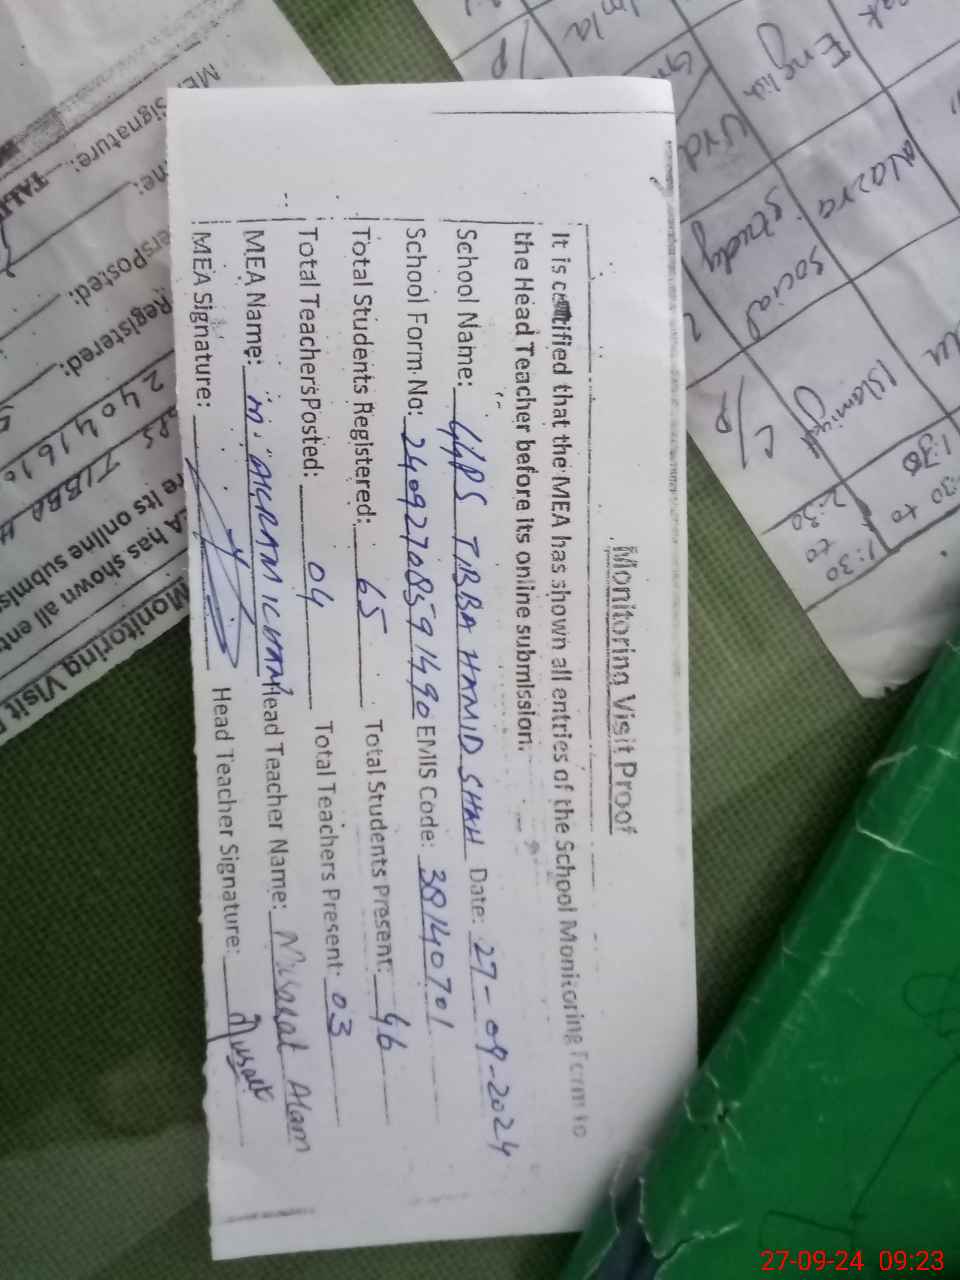 Monitoring Visit Proof
It is certified that the MEA has shown all entries of the School Monitoring Form to
the Head Teacher before its online submission.
School Name: GGPS TIBBA HAMID SHAH Date: 27-09-2024
School Form No: 24092708591490 EMIS Code: 38140701
Total Students Registered: 65 Total Students Present: 46
Total Teachers Posted: 04 Total Teachers Present: 03
MEA Name: M. AKRAM KHAN Head Teacher Name: Musarat Alam
MEA Signature: Head Teacher Signature: Musarat
Monitoring Visit
A has shown all
re its online submis
TIBBA
Registered:
ersPosted:
Signature:
English
Urdu
Nazra
Social
study
Islamiyat
1:30
to
2:30
27-09-24 09:23